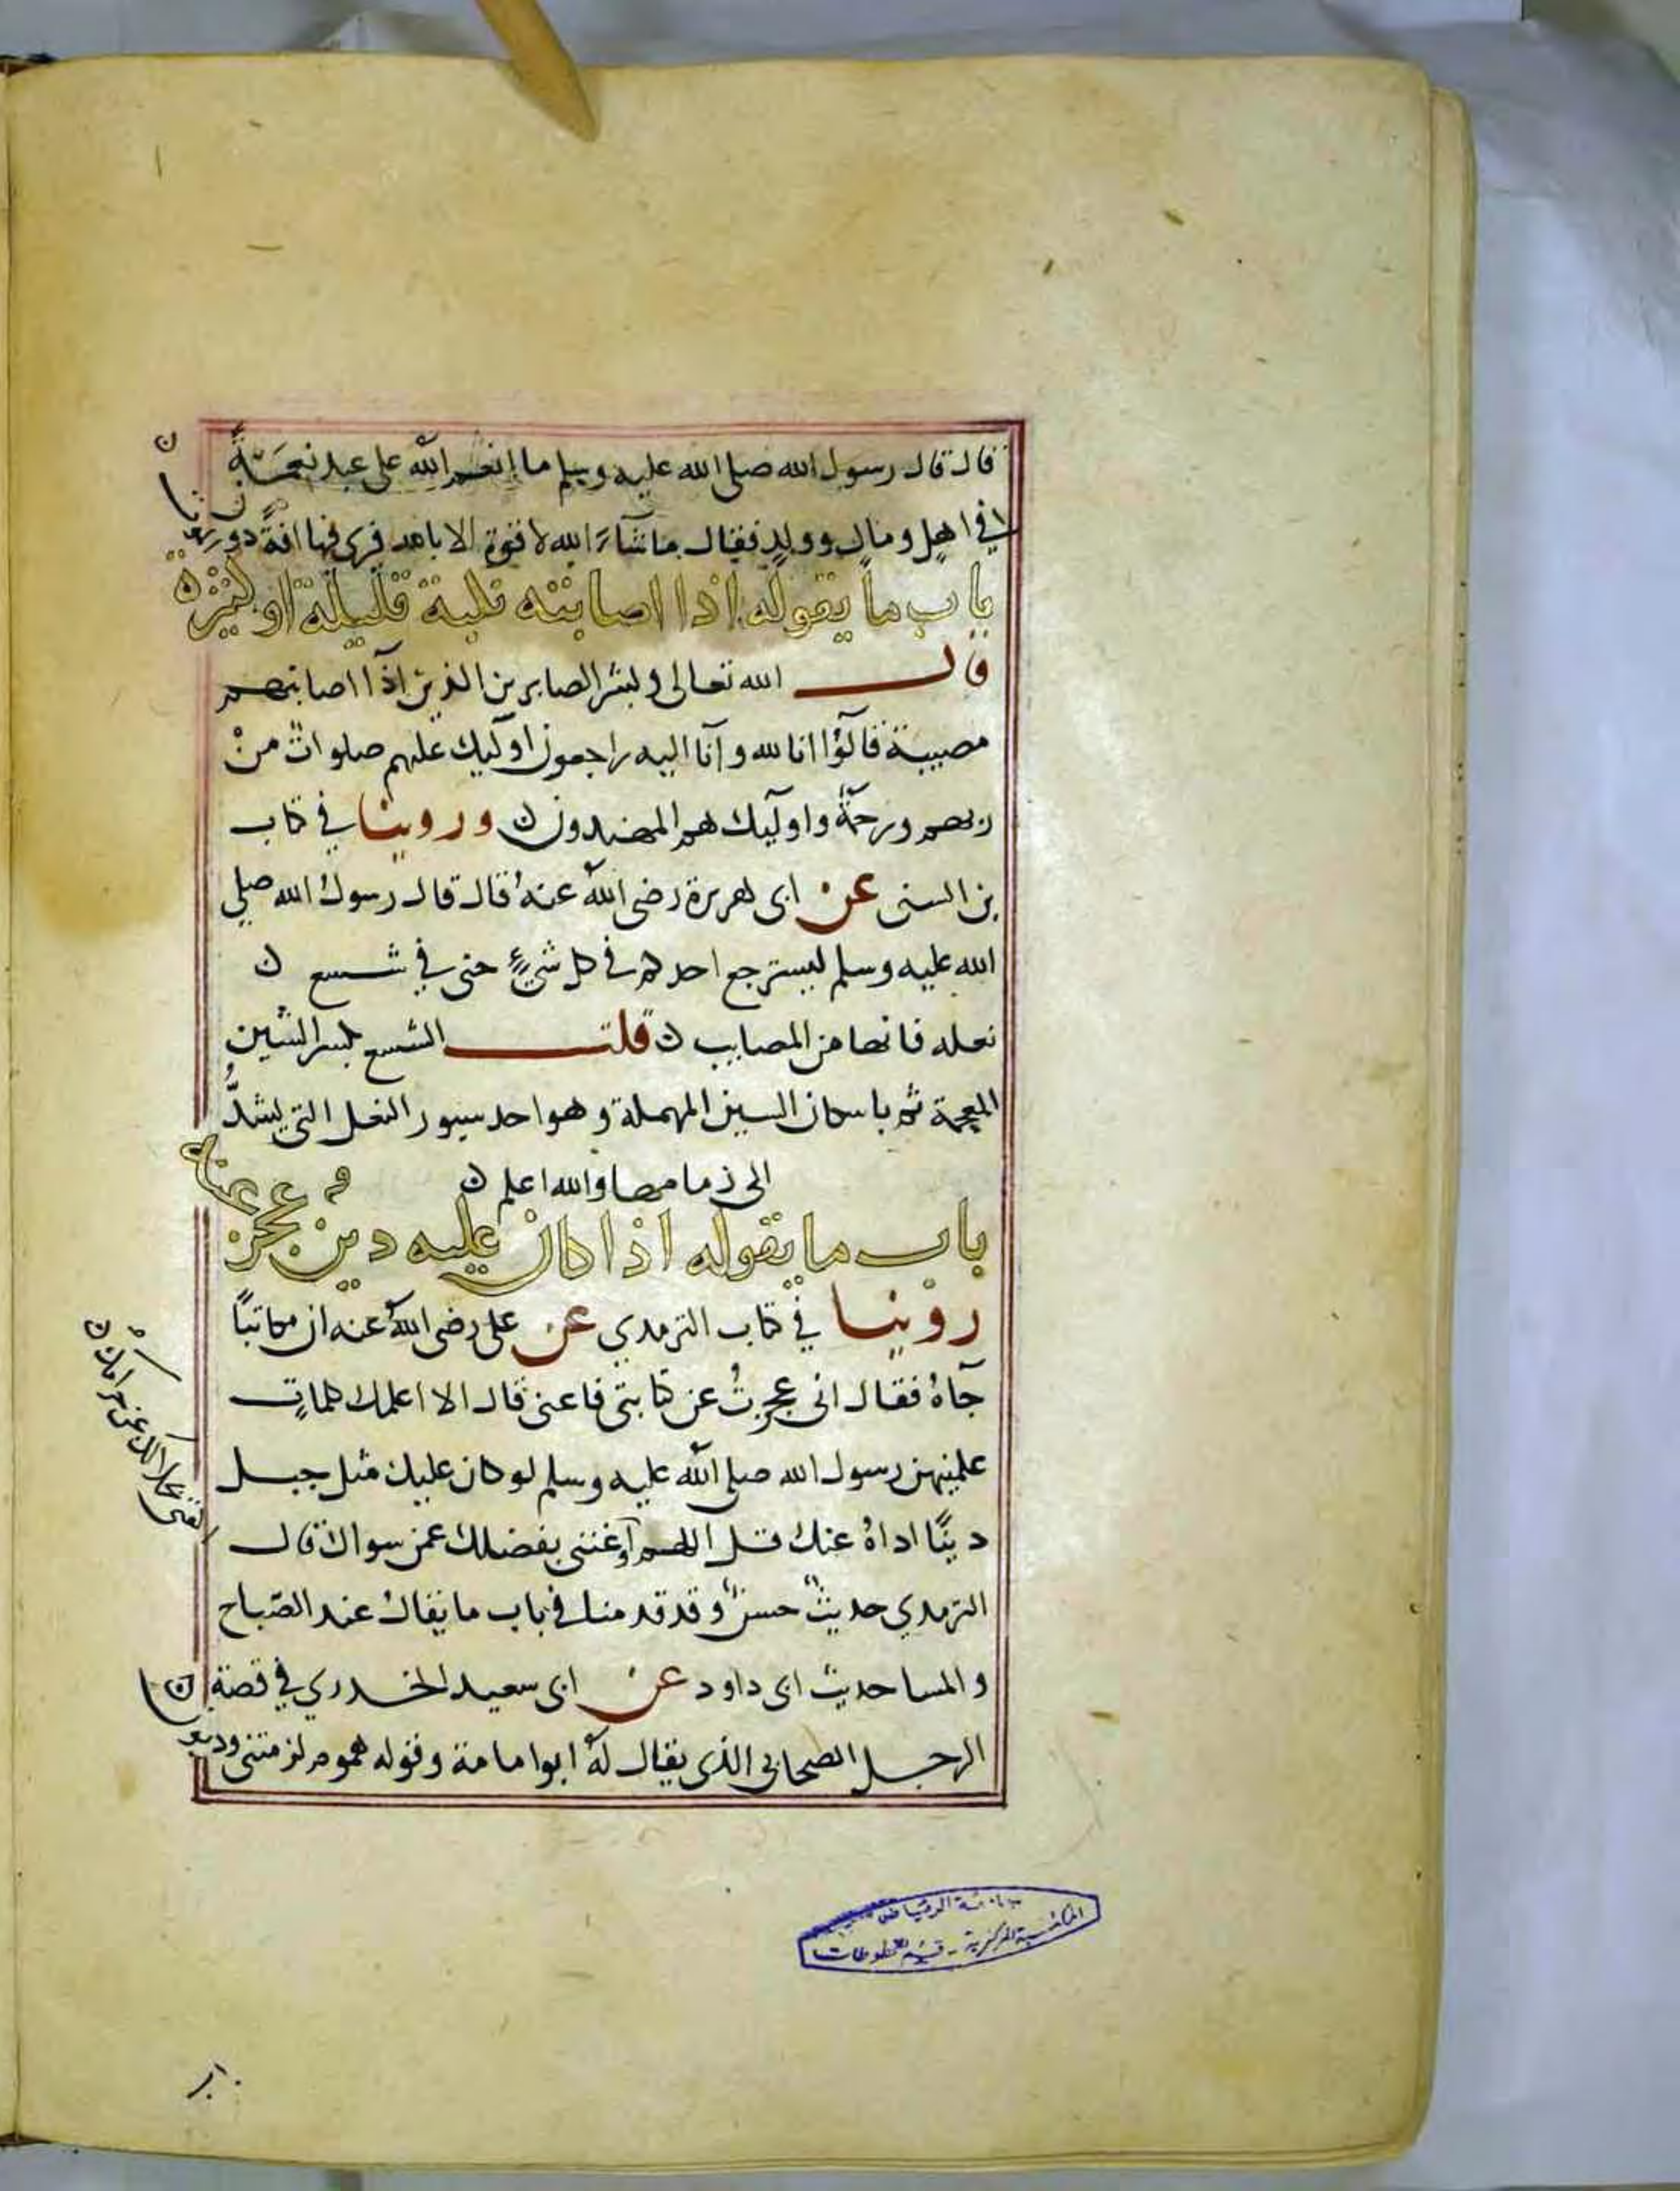 قال قال رسول الله صلى الله عليه وسلم ما انعم الله على عبد نعمةً
في اهل ومال وولد فقال ما شاء الله لا قوة الا بالله فرى فيها افة دون
باب ما يقوله اذا اصابته نكبة قليلة او كثيرة
قال الله تعالى وبشر الصابرين الذين اذا اصابتهم
مصيبة قالوا انا لله وانا اليه راجعون اوليك عليهم صلوات من
ربهم ورحمة واوليك هم المهتدون ن وروينا في كتاب
بن السنى عن ابى هريرة رضى الله عنه قال قال رسول الله صلى
الله عليه وسلم ليسترجع احدكم في كل شيء حتى في شسع ن
نعله فانها من المصايب ن قلت الشسع بكسر الشين
المعجمة ثم باسكان السين المهملة وهو احد سيور النعل التي يشدُّ
الى زمامها والله اعلم ن
باب ما يقوله اذا كان عليه دين عجز
عنه
روينا في كتاب الترمدي عن على رضى الله عنه ان مكاتبًا
جآهُ فقال انى عجزتُ عن كتابتى فاعنى قال الا اعلمك كلماتٍ
علمنيهن رسول الله صلى الله عليه وسلم لو كان عليك مثل جبل
دينًا اداهُ عنك قل اللهم
اكفنى بحلالك عن حرامك ن
واغننى بفضلك عمن سواك قال
الترمدي حديث حسن وقد قدمنا في باب ما يقال عند الصباح
والمسا حديث ابى داود عن ابى سعيد الخدري في قصة
الرجل الصحابي الذى يقال لهُ ابوا مامة وقوله هموم لزمتنى وديون
جامعة الرياض
المكتبة المركزية - قسم المخطوطات